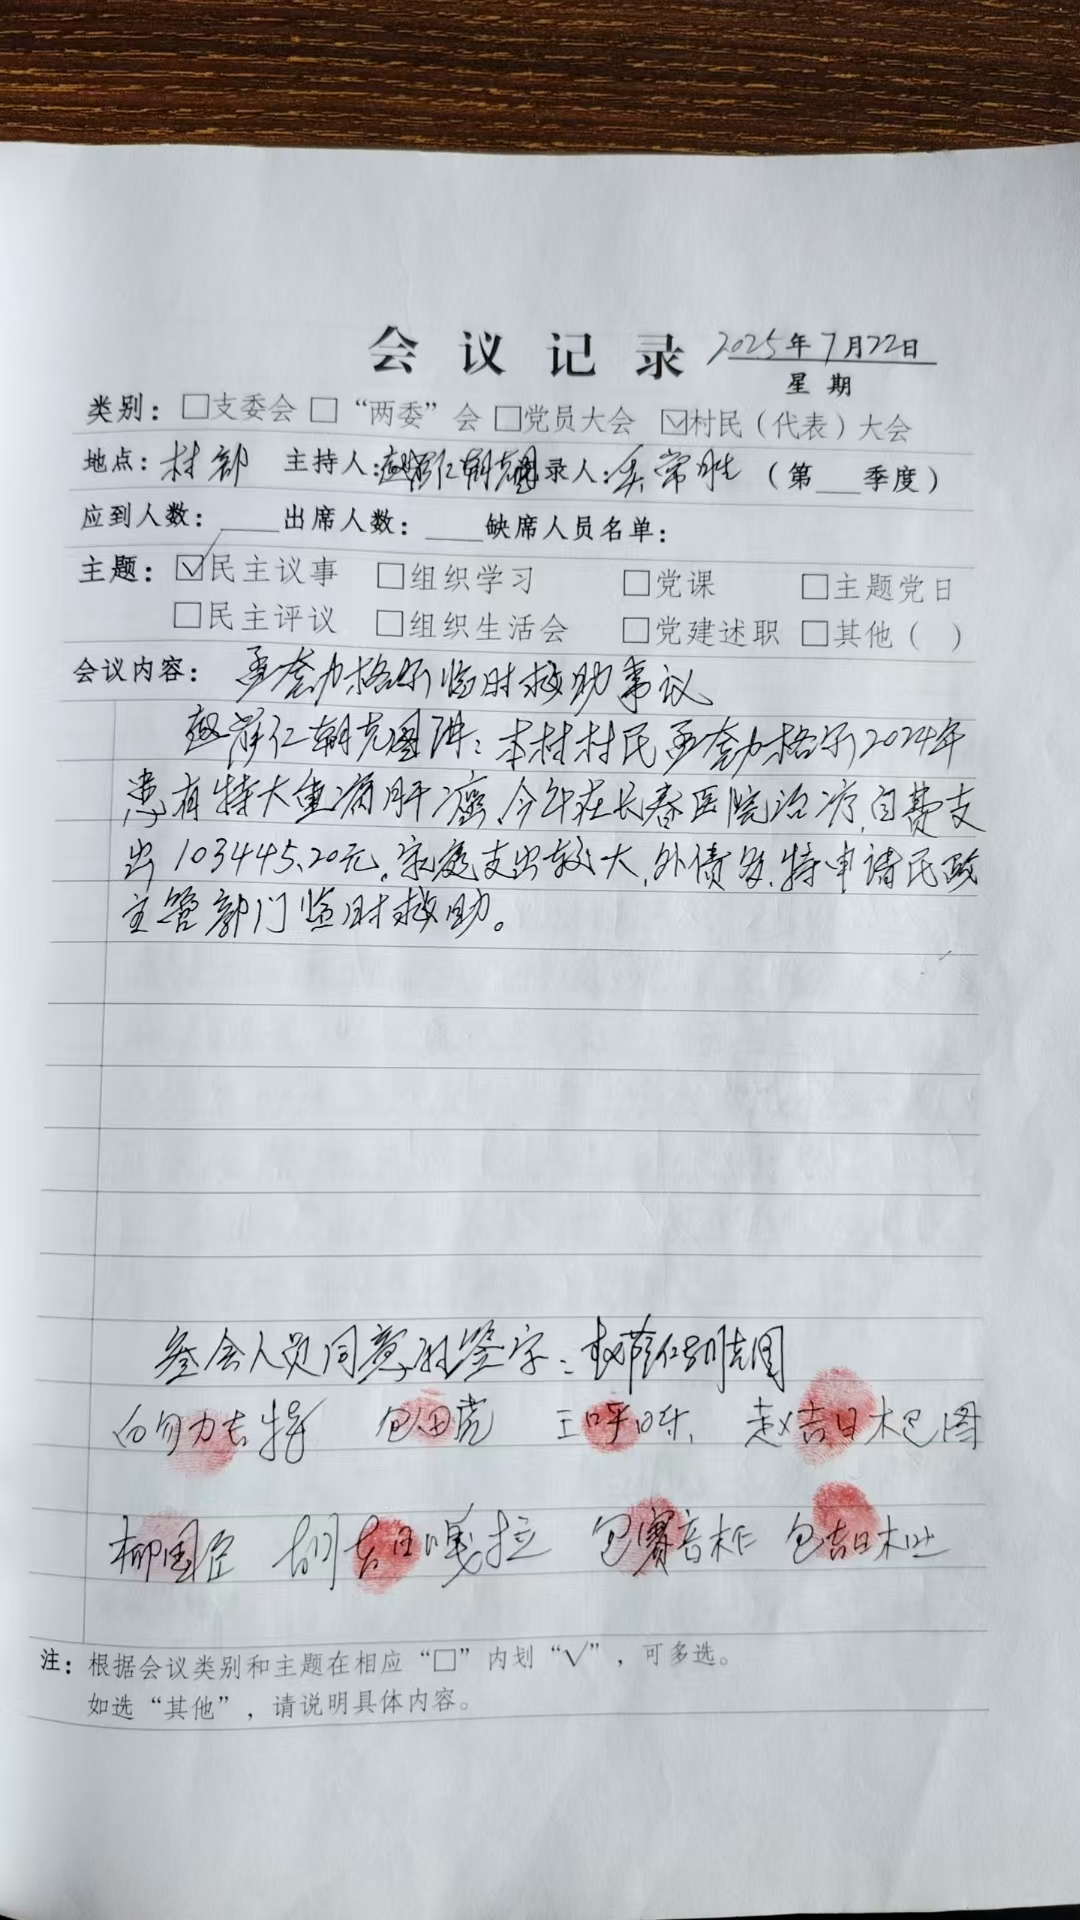 会议记录 2025年7月22日
星期
类别：□支委会 □“两委”会 □党员大会 ☑村民（代表）大会
地点：村部 主持人：仁朝克图 录人：常胜 （第___季度）
应到人数：____出席人数：____缺席人员名单：
主题：☑民主议事 □组织学习 □党课 □主题党日
□民主评议 □组织生活会 □党建述职 □其他（ ）
会议内容： 临时救助事议
仁朝克图讲：本村村民 2024年
患有特大重病肝癌，今年在长春医院治疗，自费支
出103445.20元，家庭支出较大，外债多，特申请民政
主管部门临时救助。
参会人员同意的签字：仁朝克图
白勿力吉特 包田虎 王呼 赵吉日木巴图
柳国臣 胡吉日嘎拉 包赛音 包吉日木
注：根据会议类别和主题在相应“□”内划“√”，可多选。
如选“其他”，请说明具体内容。